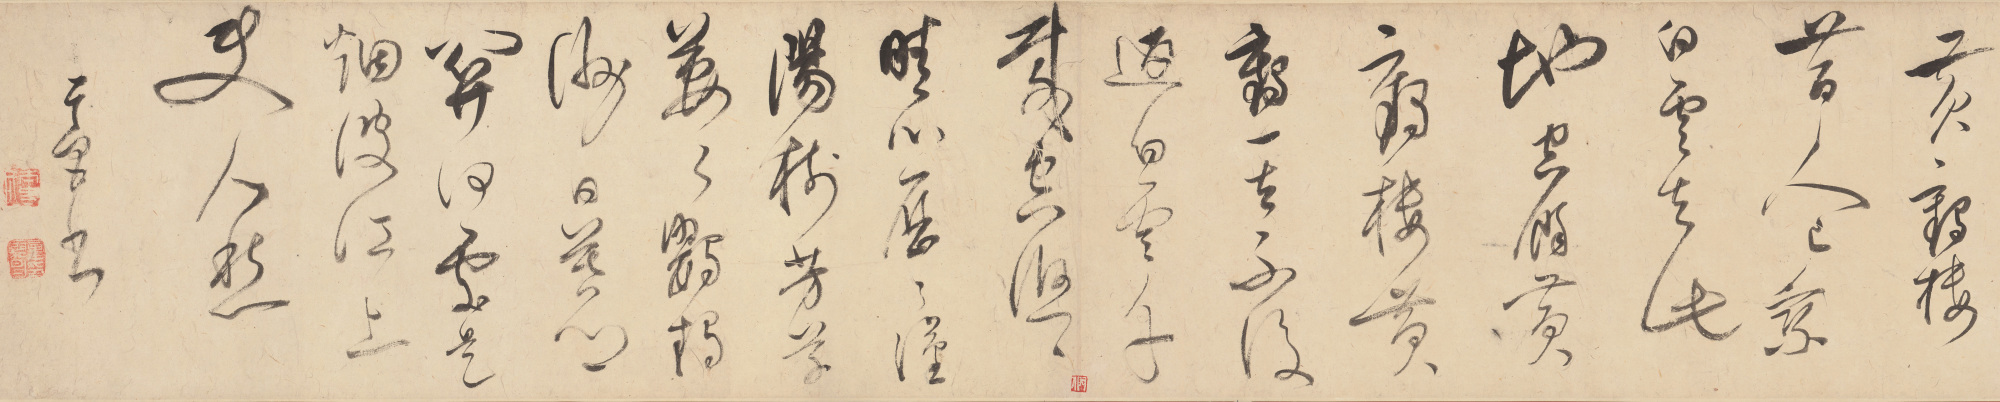 黄鶴樓
昔人已乘
白雲去此
地空餘黄
鶴樓黄
鶴一去不復
返白雲千
載空悠〻
晴川歷〻漢
陽樹芳草
萋〻鸚鵡
洲日暮鄉
關何處是
烟波江上
使人愁
其昌書